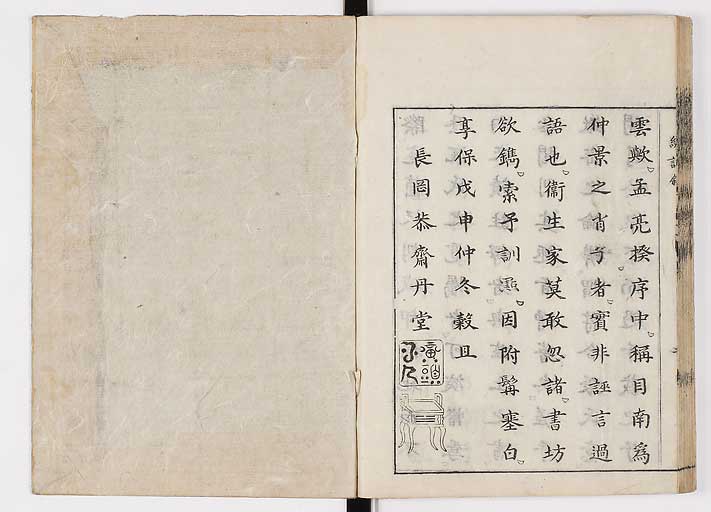 雲歟孟亮揆序中稱目南爲
仲景之肖子者實非誣言過
語也衞生家莫敢忽諸書坊
欲鐫索予訓點因附髯塞白
享保戊申仲冬穀旦
長岡恭齋丹堂